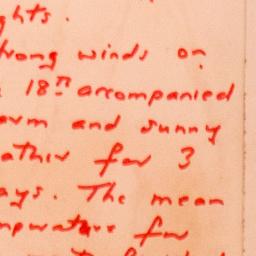 ghts.
trong winds on
18th accompanied
arm and sunny
ather for 3
ays. The mean
mperature for